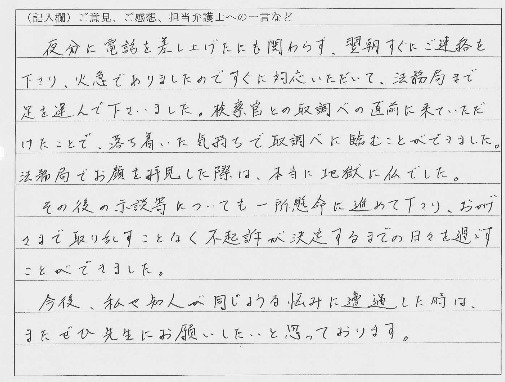 （記入欄）ご意見、ご感想、担当弁護士への一言など
夜分に電話を差し上げたにも関わらず、翌朝すぐにご連絡を
下さり、火急でありましたのですぐに対応いただいて、法務局まで
足を運んで下さいました。検察官との取調べの直前に来ていただ
けたことで、落ち着いた気持ちで取調べに臨むことができました。
法務局でお顔を拝見した際は、本当に地獄に仏でした。
その後の示談等についても一所懸命に進めて下さり、おかげ
さまで取り乱すことなく不起訴が決定するまでの日々を過ごす
ことができました。
今後、私や知人が同じような悩みに遭遇した時は、
またぜひ先生にお願いしたいと思っております。